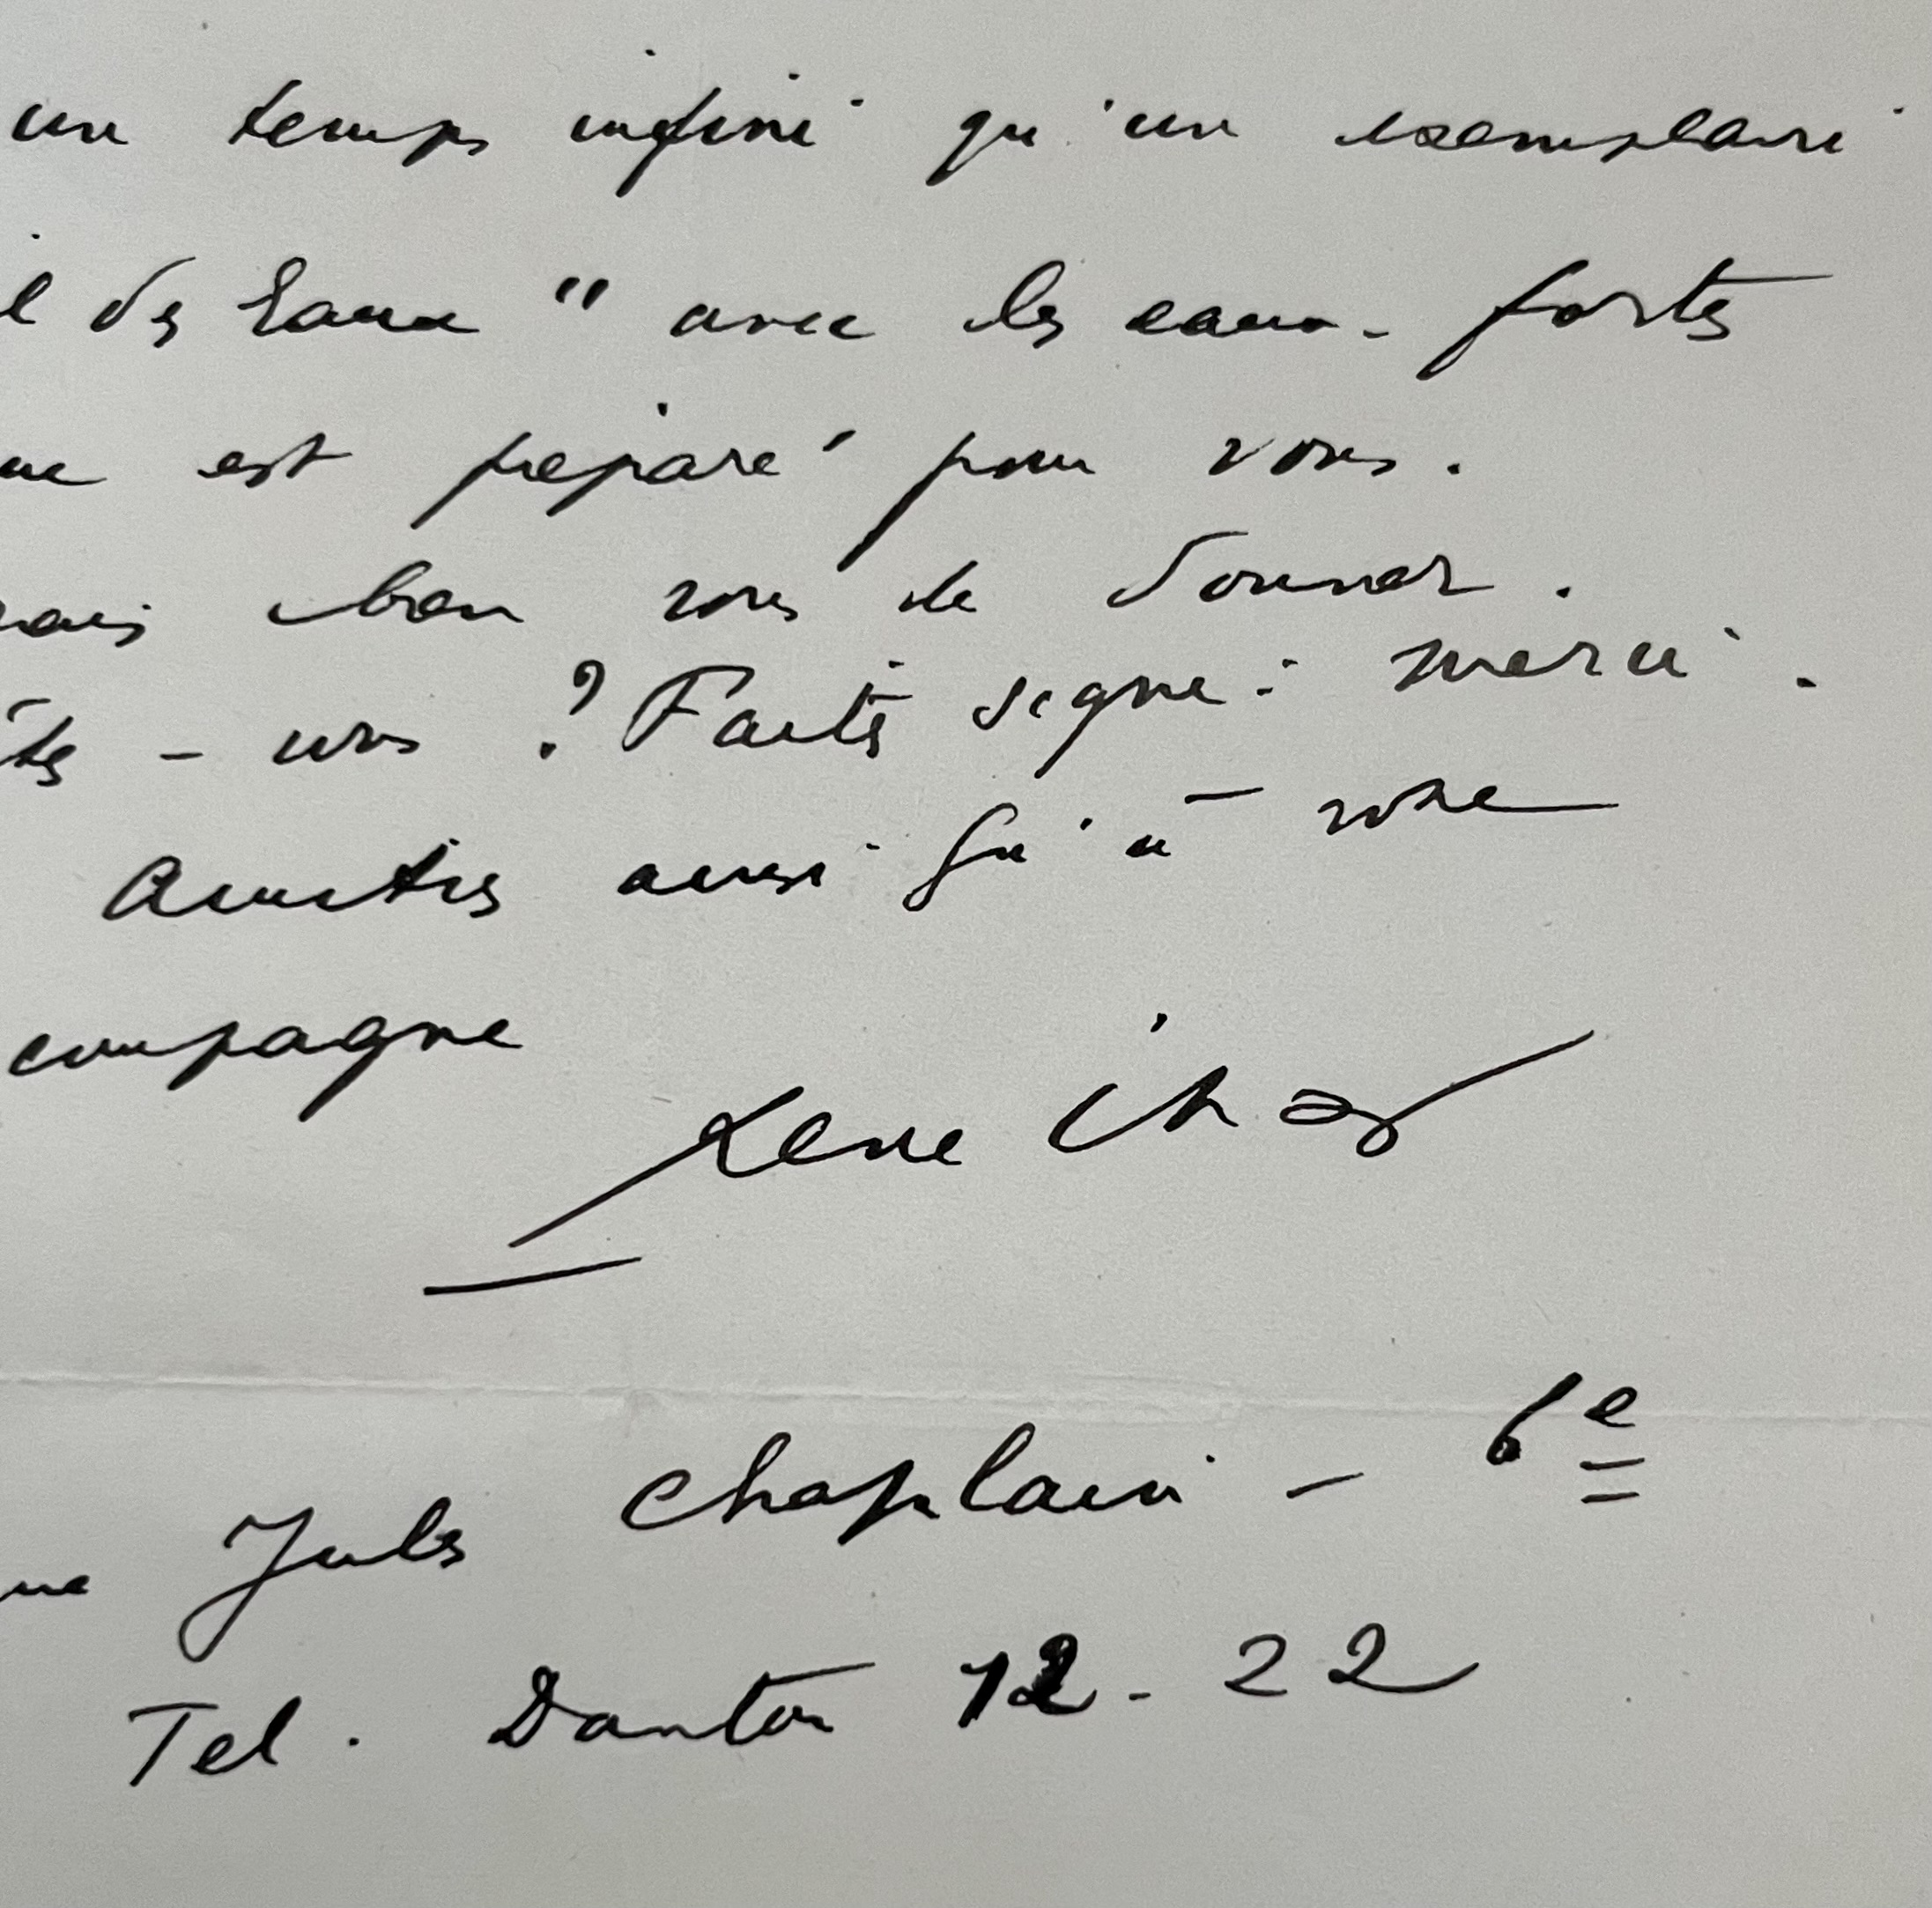 un temps infini qu'un exemplaire
des Eaux" avec les eaux-fortes
est préparé pour vous.
bien vous le donner.
-vous ? Faites signe: merci.
Amitiés ainsi qu'à votre
compagne
René Char
Jules Chaplain - 6e
Tel. Danton 12-22